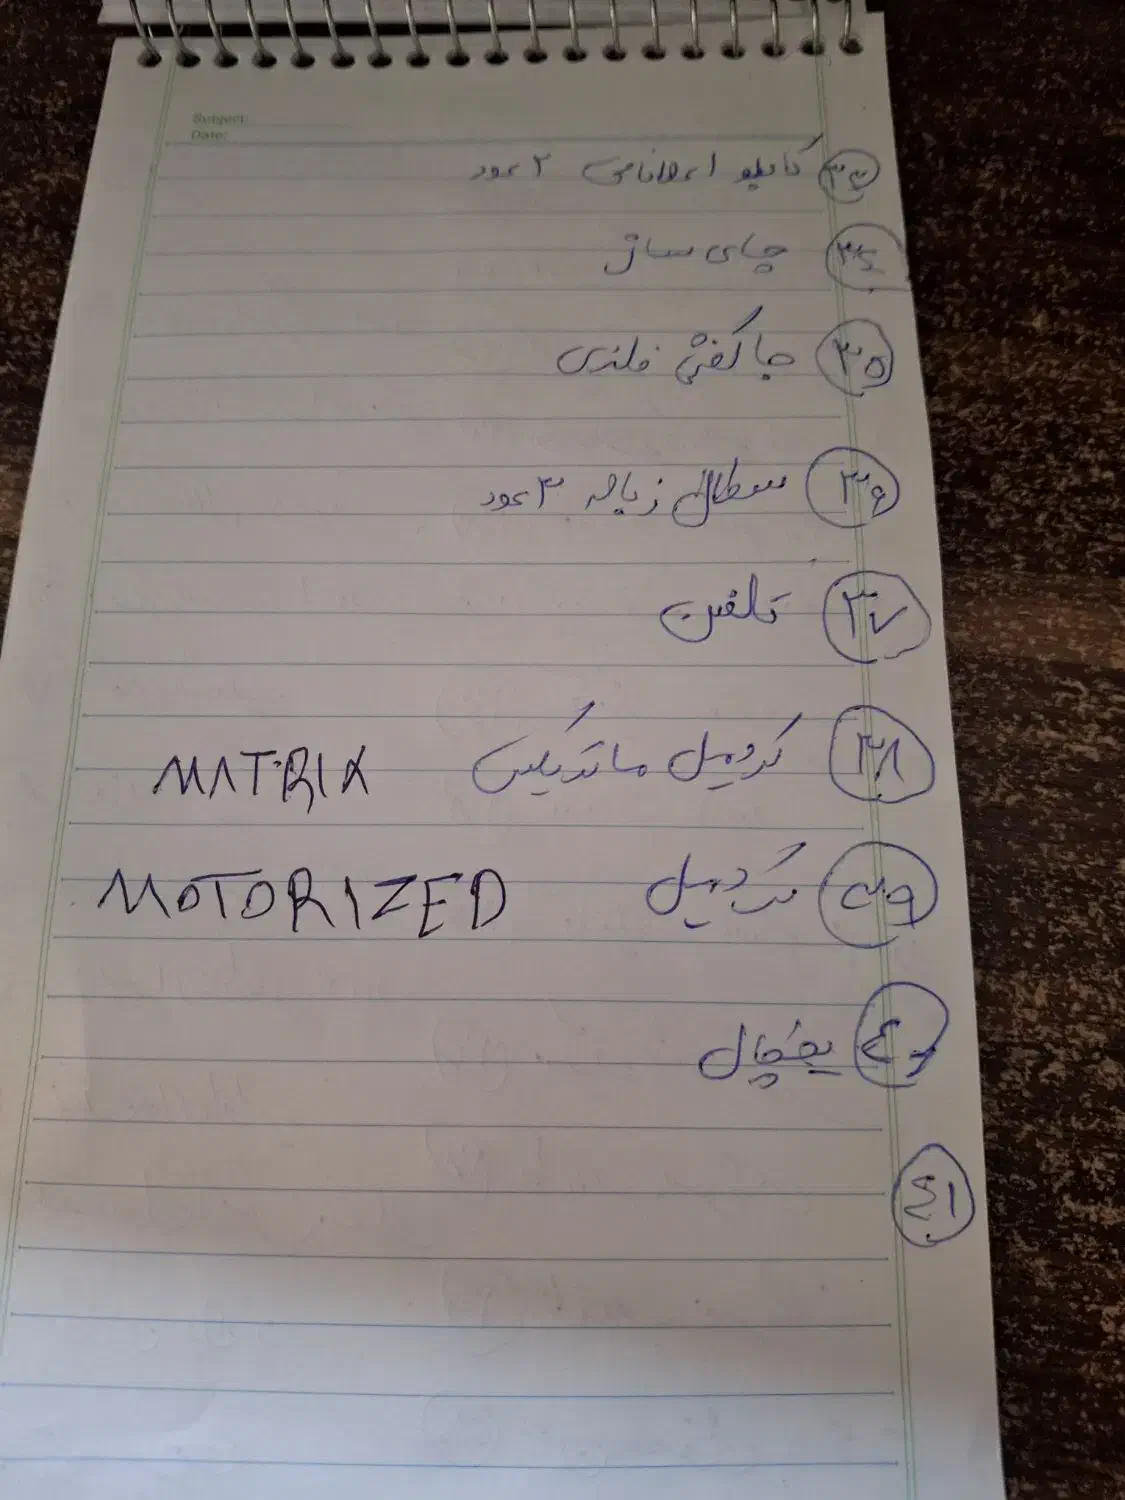 Subject:
Date:
۳۳ تابلو اعلانات ۲ عدد
۳۴ چای ساز
۳۵ جا کفشی فلزی
۳۶ سطل زباله ۳ عدد
۳۷ تلفن
۳۸ تردمیل ماتریکس MATRIX
۳۹ تردمیل MOTORIZED
۴۰ یخچال
۴۱